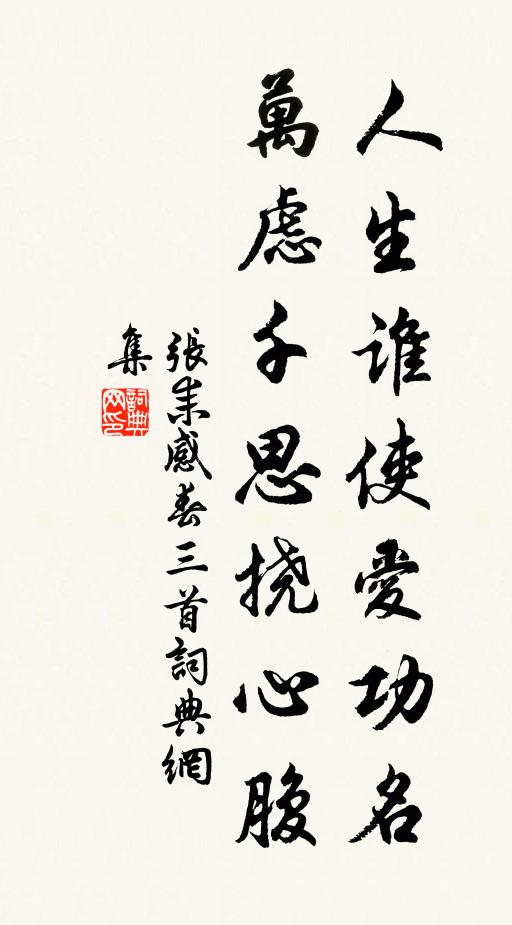 人生誰使愛功名
萬慮千思撓心腹
張耒感春三首詞典網
集
詞典
网印